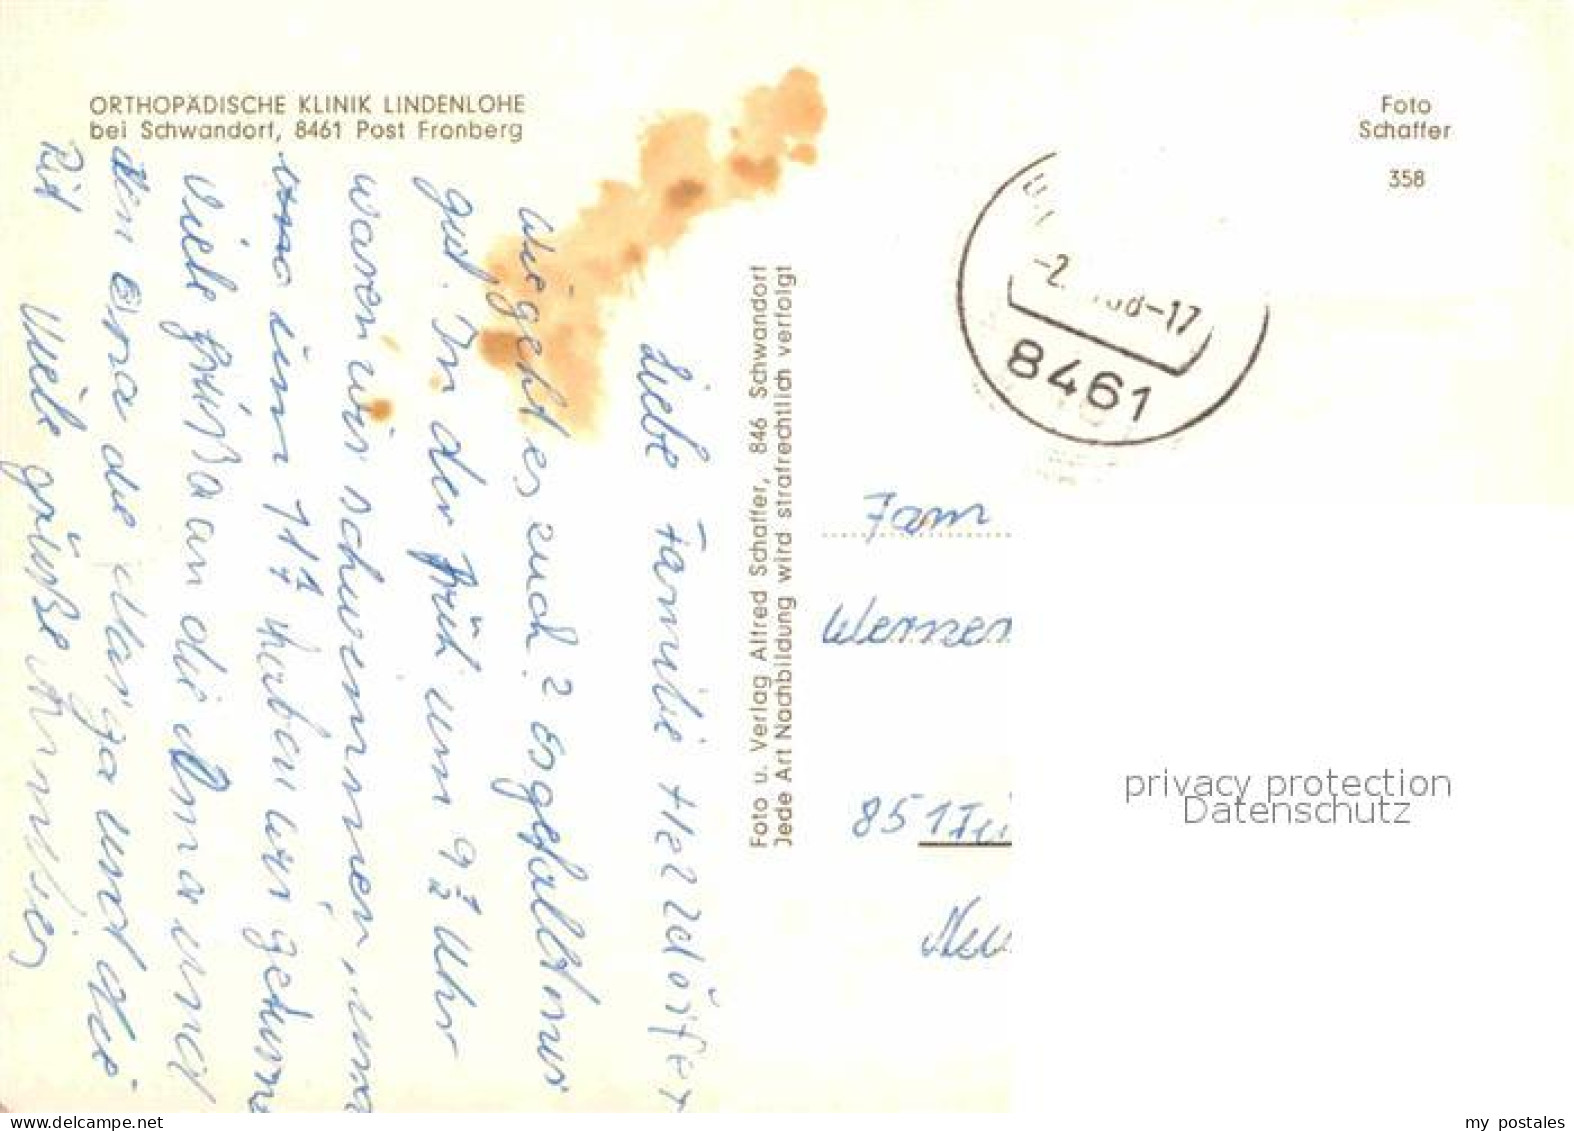 ORTHOPÄDISCHE KLINIK LINDENLOHE
bei Schwandorf, 8461 Post Fronberg
Foto
Schaffer
358
-2.
68-17
8461
Liebe Familie Hezzelörfer
Wie geht es euch? Es gefällt mir
gut. In der früh um 9½ Uhr
waren wir schwimmen, und
um 11 haben wir geturnt
Viele grüße an die Oma und
den Opa die Marga und die
Rit Viele grüße
Foto u. Verlag Alfred Schaffer, 846 Schwandorf
Jede Art Nachbildung wird strafrechtlich verfolgt
Fam
Werner
851 Fü
Neu
privacy protection
Datenschutz
my postales